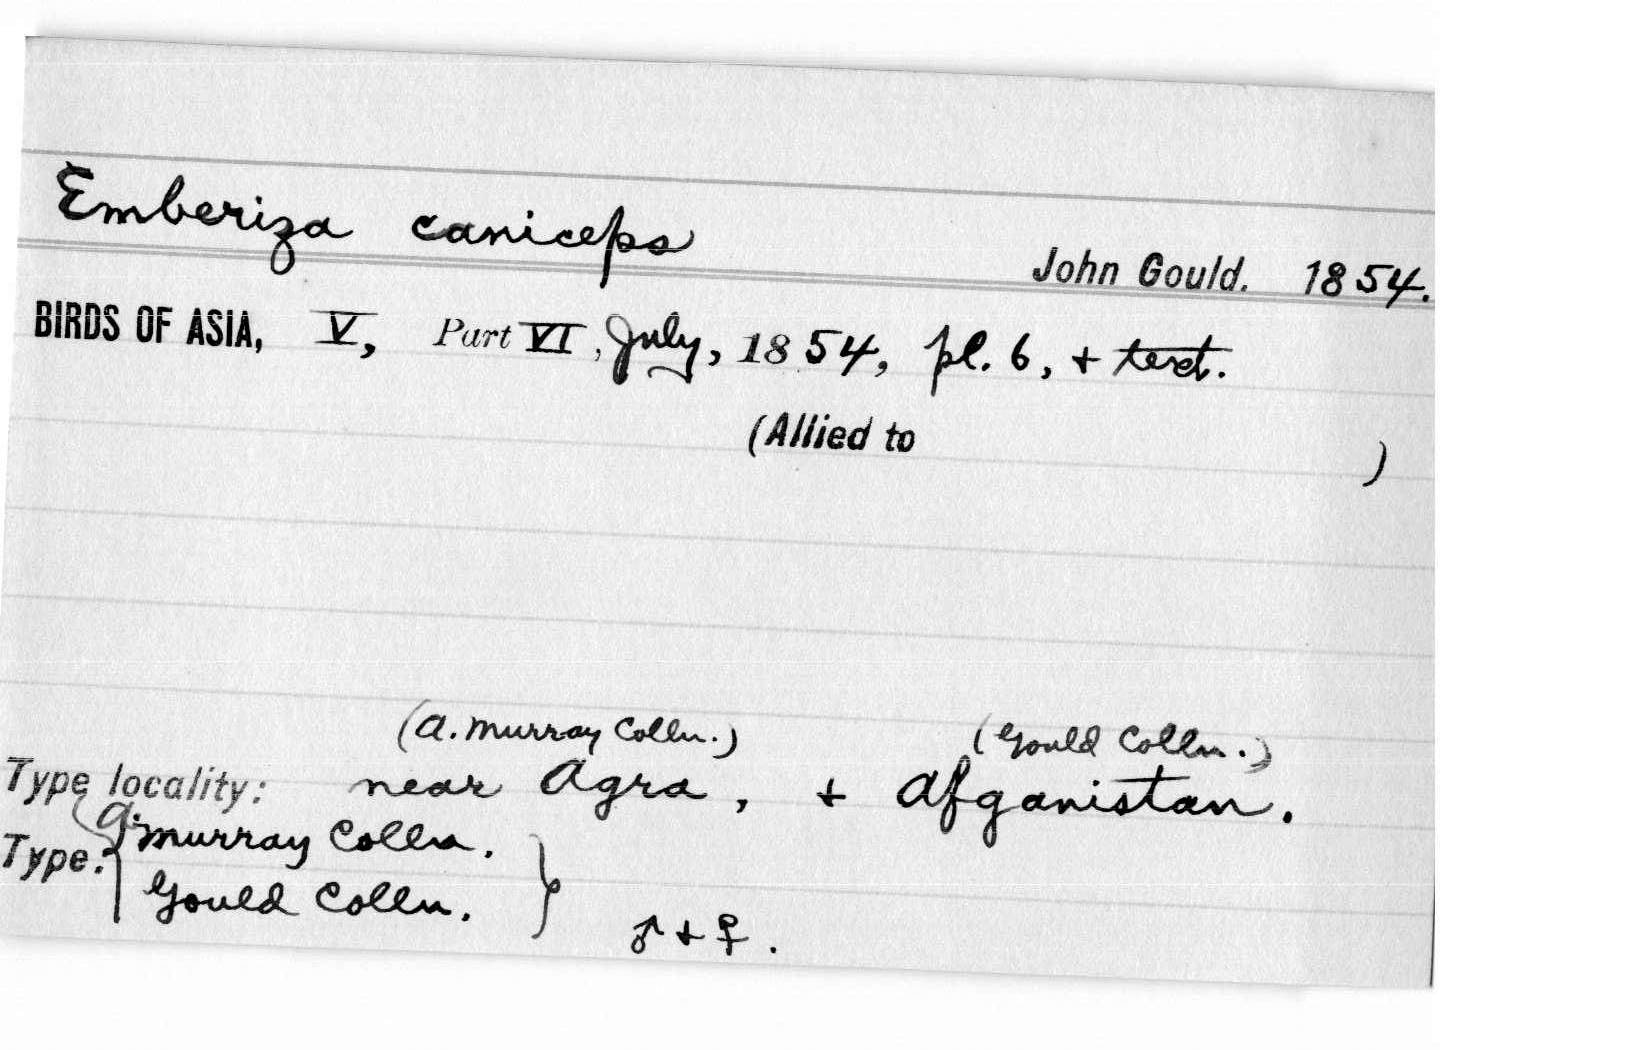 Emberiza caniceps
John Gould. 1854.
BIRDS OF ASIA, V, Part VI, July, 1854, pl. 6, + text.
(Allied to )
(A. Murray Colln.) (Gould Colln.)
Type locality: near Agra, + Afganistan.
Type: { A. Murray Colln.
Gould Colln. } ♂ + ♀.